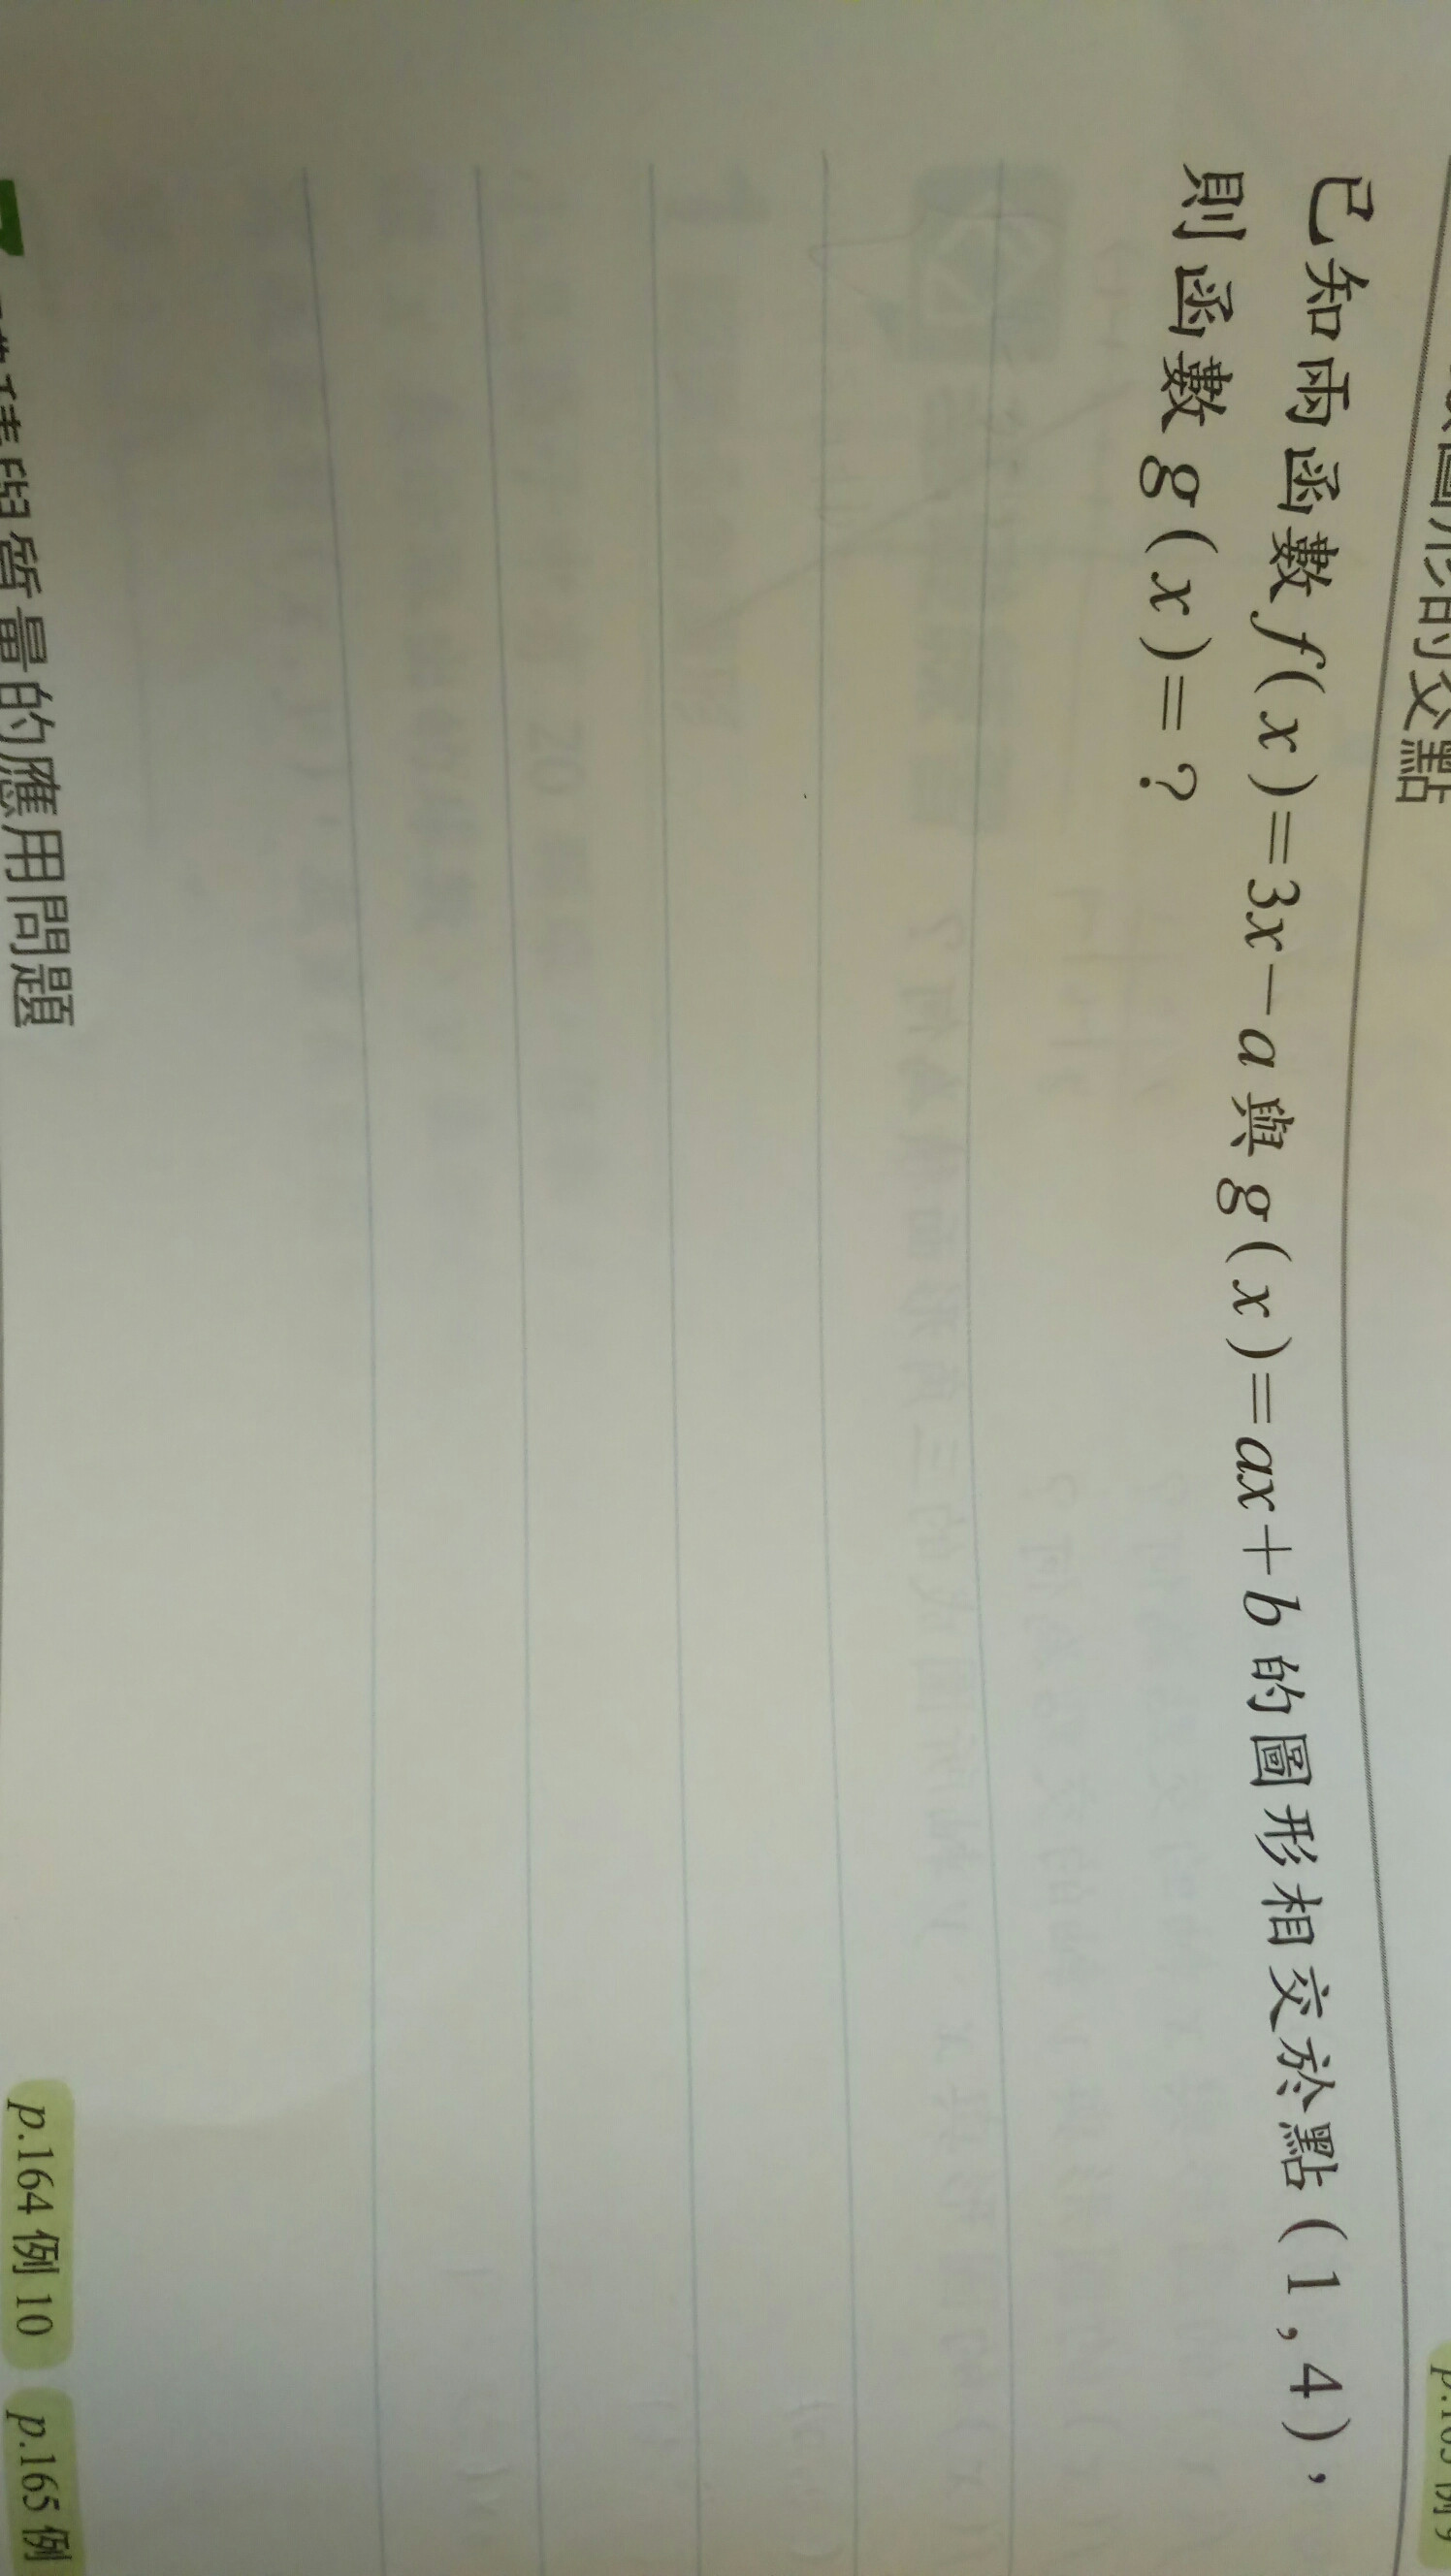 圖形的交點
已知兩函數 f(x)=3x−a 與 g(x)=ax+b 的圖形相交於點(1,4)，
則函數 g(x)=?
與質量的應用問題
p.164 例 10 p.165 例